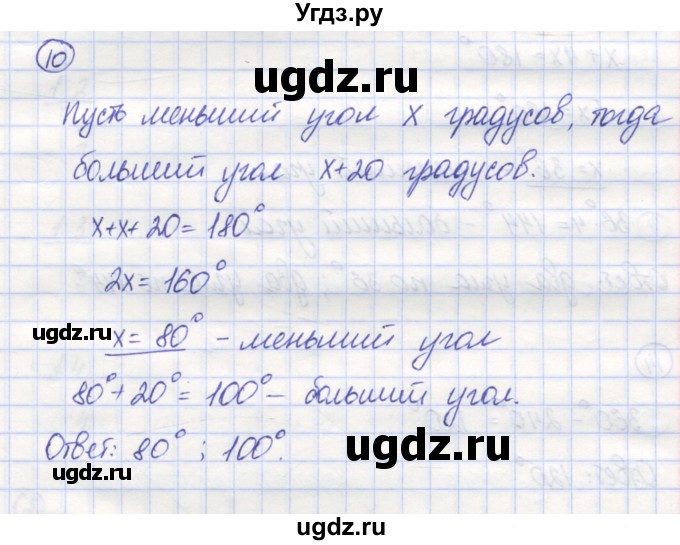 Угдз.ру
10
ugdz.ru
Пусть меньший угол х градусов, тогда
больший угол х+20 градусов.
х+х+20=180°
2х=160°
ugdz.ru
х=80° - меньший угол
80°+20°=100° - больший угол.
ugdz.ru
Ответ: 80°; 100°.
ugdz.ru
ugdz.ru